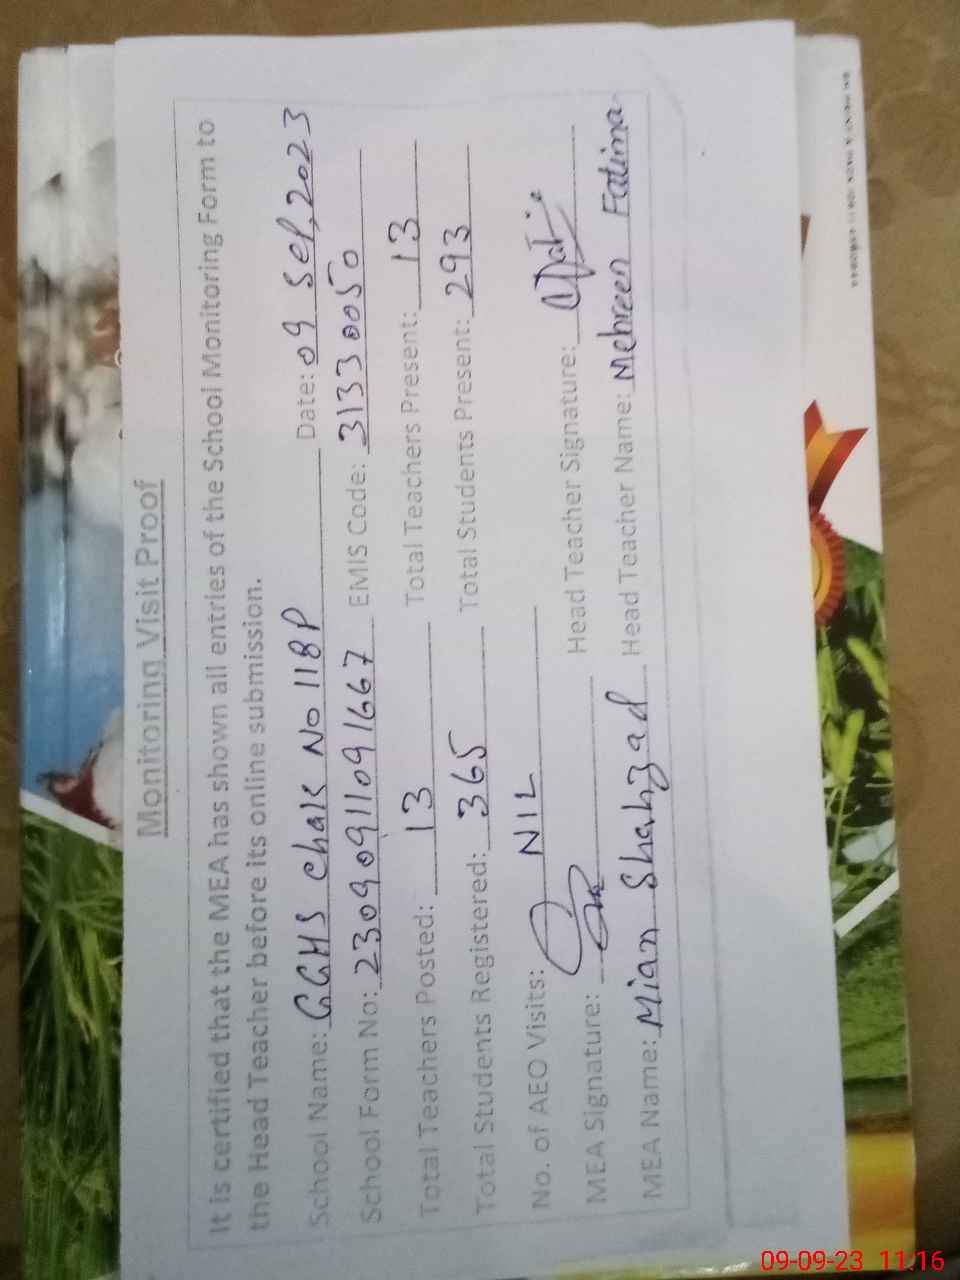 Monitoring Visit Proof
It is certified that the MEA has shown all entries of the School Monitoring Form to
the Head Teacher before its online submission.
School Name: GGHS Chak No 118P Date: 09 Sep, 2023
School Form No: 23090911091667 EMIS Code: 31330050
Total Teachers Posted: 13 Total Teachers Present: 13
Total Students Registered: 365 Total Students Present: 293
No. of AEO Visits: NIL
MEA Signature: Head Teacher Signature:
MEA Name: Mian Shahzad Head Teacher Name: Mehreen Fatima
09-09-23 11:16